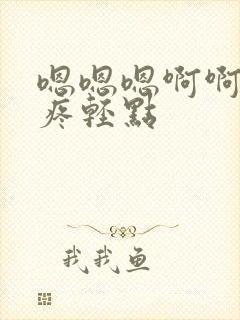 嗯嗯嗯啊啊
疼轻點
我我鱼